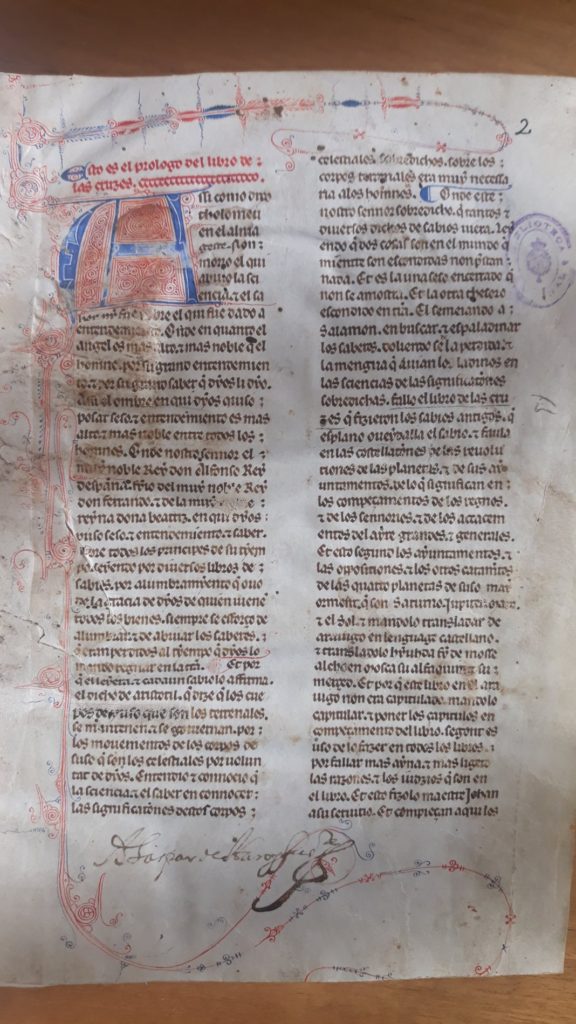 2
Esto es el prologo del libro de :
las cruzes.
Assi como dixo
tholomeu
en el alma
geste. Non :
morço el qui
abiuo la sci
encia. τ el sa
ber nin fue pobre el qui fue dado a
entendemiento. Onde en quanto el
angel es mas alto. τ mas noble q̃ el
homne. por su grand entendemien
to. τ por su grand saber q̃ dyos li dyo.
Assi el ombre en qui dyos quiso.
posar seso. τ entendemiento es mas
alto. τ mas noble entre todos los :
homnes. Onde nostro sennor el :
muy noble Rey don Alfonso Rey
despanna. fyio del muy noble Rey
don ferrando. τ de la muy noble
reyna dona beatriz. en qui dyos :
puso seso. τ entendemiento. τ saber.
sobre todos los principes de su tyem
po. leyendo por diuersos libros de :
sabios. por alumbramyento q̃ ouo
de la gracia de dyos de quien uiene
todos los bienes. siempre se esforço de
alumbrar. τ de abiuar los saberes. τ
q̃ eran perdidos al tyempo q̃ dyos lo
mando regnar en la trã. Et por
q̃ el leyera. τ cada un sabio lo affirma.
el dicho de aristotil. q̃ dize q̃ los cue
pos de yuso que son los terrenales.
se mantenen. τ se gouiernan. por :
los mouementos de los corpos de
suso q̃ son los celestiales por uolun
tat de dyos. Entendio τ connocio q̃
la sciencia. τ el saber en connocer :
las significationes destos corpos ;
celestiales. sobredichos. sobre los :
corpos terrenales era muy necessa
ria a los homnes. Onde este :
nostro sennor sobredicho. q̃ tantos τ
diuersos dichos de sabios uiera. Ley
endo q̃ dos cosas son en el mundo q̃
mientre son escondidas non prestan
nada. Et es la una seso encerrado q̃
non se amostra. Et la otra thesoro
escondido en trã. El semeiando a
Salamon. en buscar. τ espaladinar
los saberes. doliendo se de la perdida. τ
la mengua q̃ auian los ladinos en
las sciencias de las significationes
sobredichas. fallo el libro de las cru
zes q̃ fizieron los sabios antigos. q̃
esplano oueydalla el sabio. τ faula
en las costellationes de las reuolu
tiones de las planetas. τ de sus ay
untamentos. de lo q̃ significan en
los compeçamentos de los regnos.
τ de los sennorios. τ de los accaecem
entos del ayre grandes. τ generales.
Et esto segund los ayuntamentos. τ
las oppositiones. τ los otros catamientos
de las quatro planetas de suso may
ormente. q̃ son Saturno. Jupiter. Mars.
τ el Sol. τ mandolo transladar de
arauigo en lenguage castellano.
τ transladolo hyuhda fy de mosse
alchoen mosca su alfaquim. τ su :
merçed. Et por q̃ este libro en el ara
uigo non era capitulado. mandolo
capitular. τ poner los capitulos en
compeçamento del libro. segont es
uso de lo fazer en todos los libros.
por fallar mas ayna. τ mas ligero
las razones. τ los iudizios q̃ son en
el libro. Et esto fizolo maestre Johan
a su seruitio. Et compieçan aqui los
BIBLIOTECA